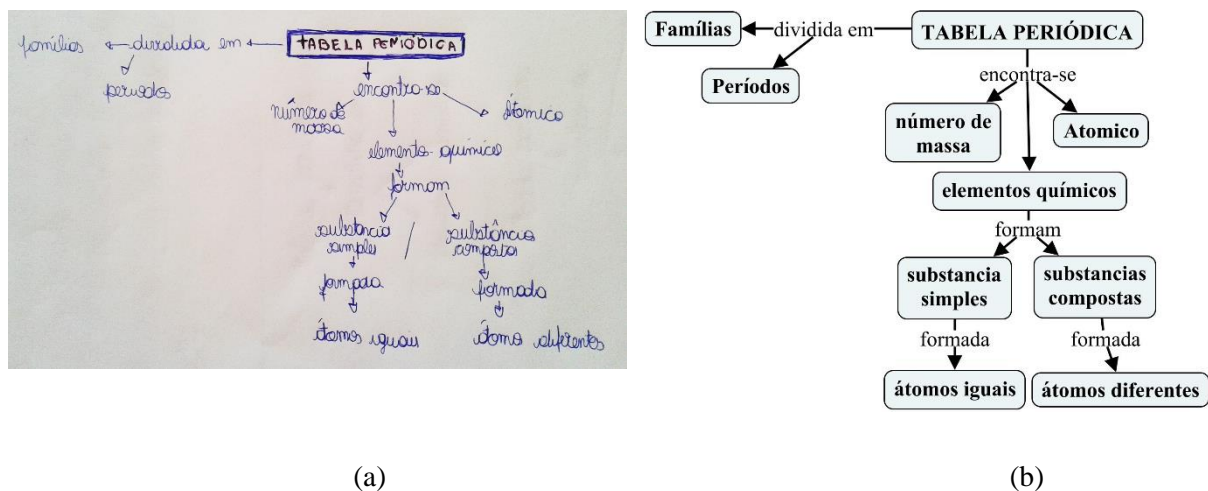 famílias dividida em TABELA PERIÓDICA
períodos
encontra-se
número de
massa
Atômico
elemento químico
formam
substância
simples
substância
composta
formada
formada
átomos iguais
átomo diferentes
(a)
Famílias dividida em TABELA PERIÓDICA
Períodos
encontra-se
número de
massa
Atomico
elementos químicos
formam
substancia
simples
substancias
compostas
formada
formada
átomos iguais
átomos diferentes
(b)